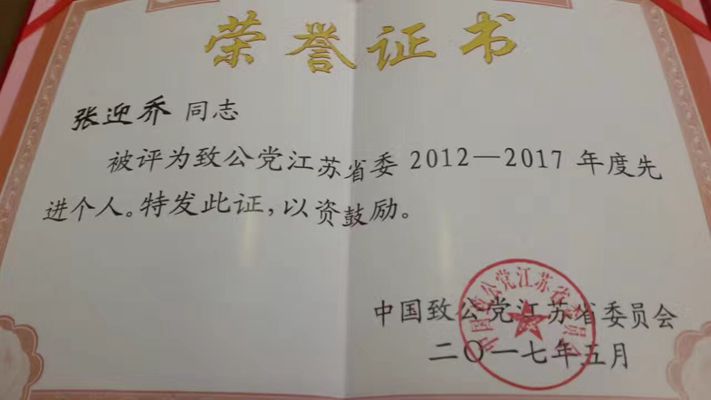 荣誉证书
张迎乔 同志
被评为致公党江苏省委 2012—2017 年度先
进个人。特发此证,以资鼓励。
中国致公党江苏省委员会
二〇一七年五月
中国致公党江苏省委员会